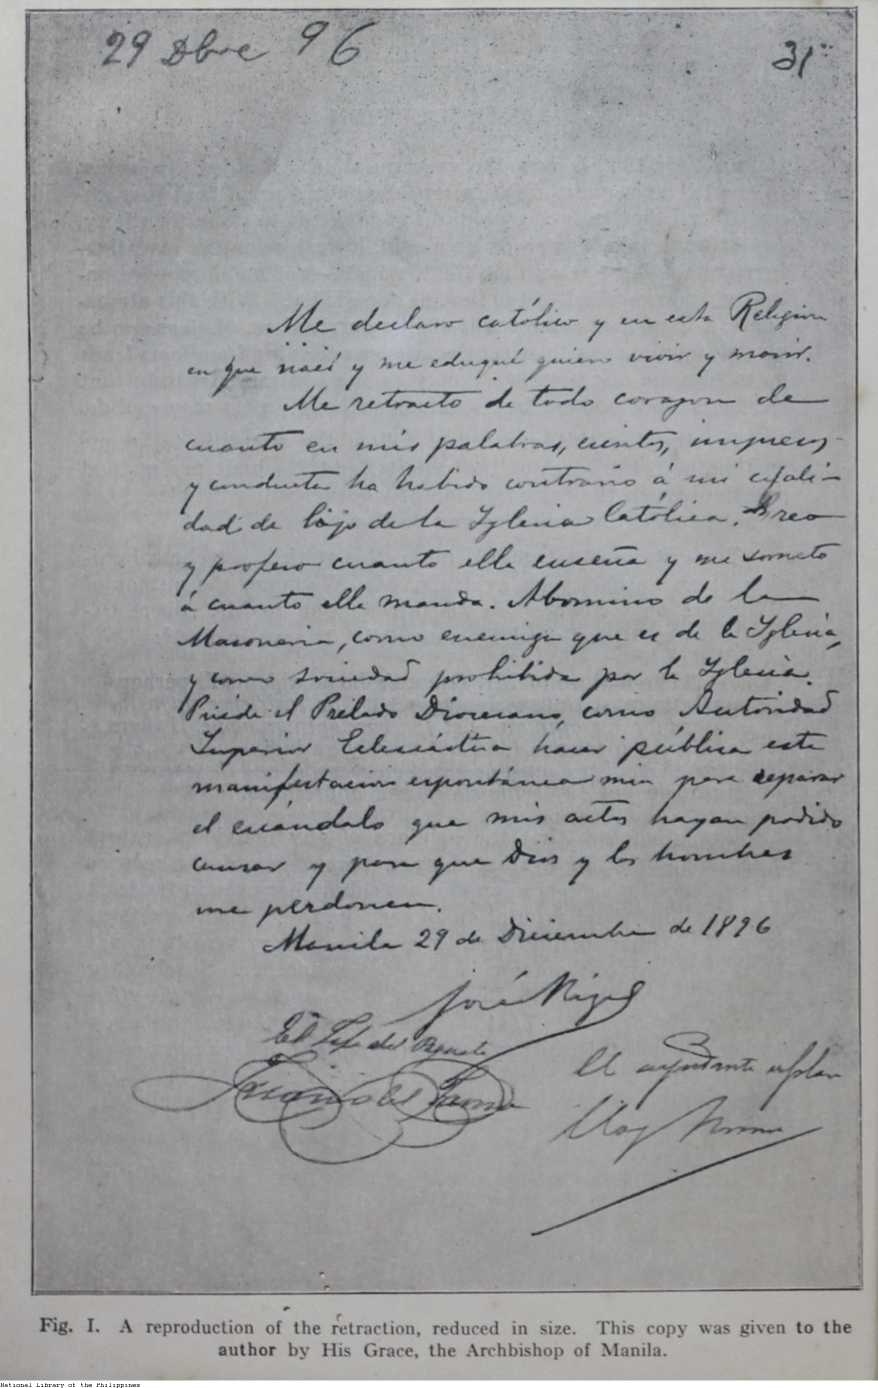 29 Dbre 96
31
Me declaro católico y en esta Religion
en que nací y me eduqué quiero vivir y morir.
Me retracto de todo corazon de
cuanto en mis palabras, escritos, impresos
y conducta ha habido contrario á mi cuali-
dad de hijo de la Iglesia Católica. Creo
y profeso cuanto ella enseña y me someto
á cuanto ella manda. Abomino de la
Masoneria, como enemiga que es de la Iglesia,
y como sociedad prohibida por la Iglesia.
Puede el Prelado Diocesano, como Autoridad
Superior Eclesiástica hacer pública esta
manifestacion espontánea mia para reparar
el escándalo que mis actos hayan podido
causar y para que Dios y los hombres
me perdonen.
Manila 29 de Diciembre de 1896
José Rizal
El Jefe del Piquete
Juan del Fresno
El ayudante de plaza
Eloy Moure
Fig. I. A reproduction of the retraction, reduced in size. This copy was given to the
author by His Grace, the Archbishop of Manila.
National Library of the Philippines